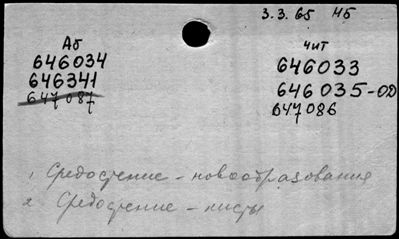 3.3.65 Нб
Аб
646034
646341
647087
чит
646033
646035-ОД
647086
1 Средостение - новообразования
2 Средостение - кисты